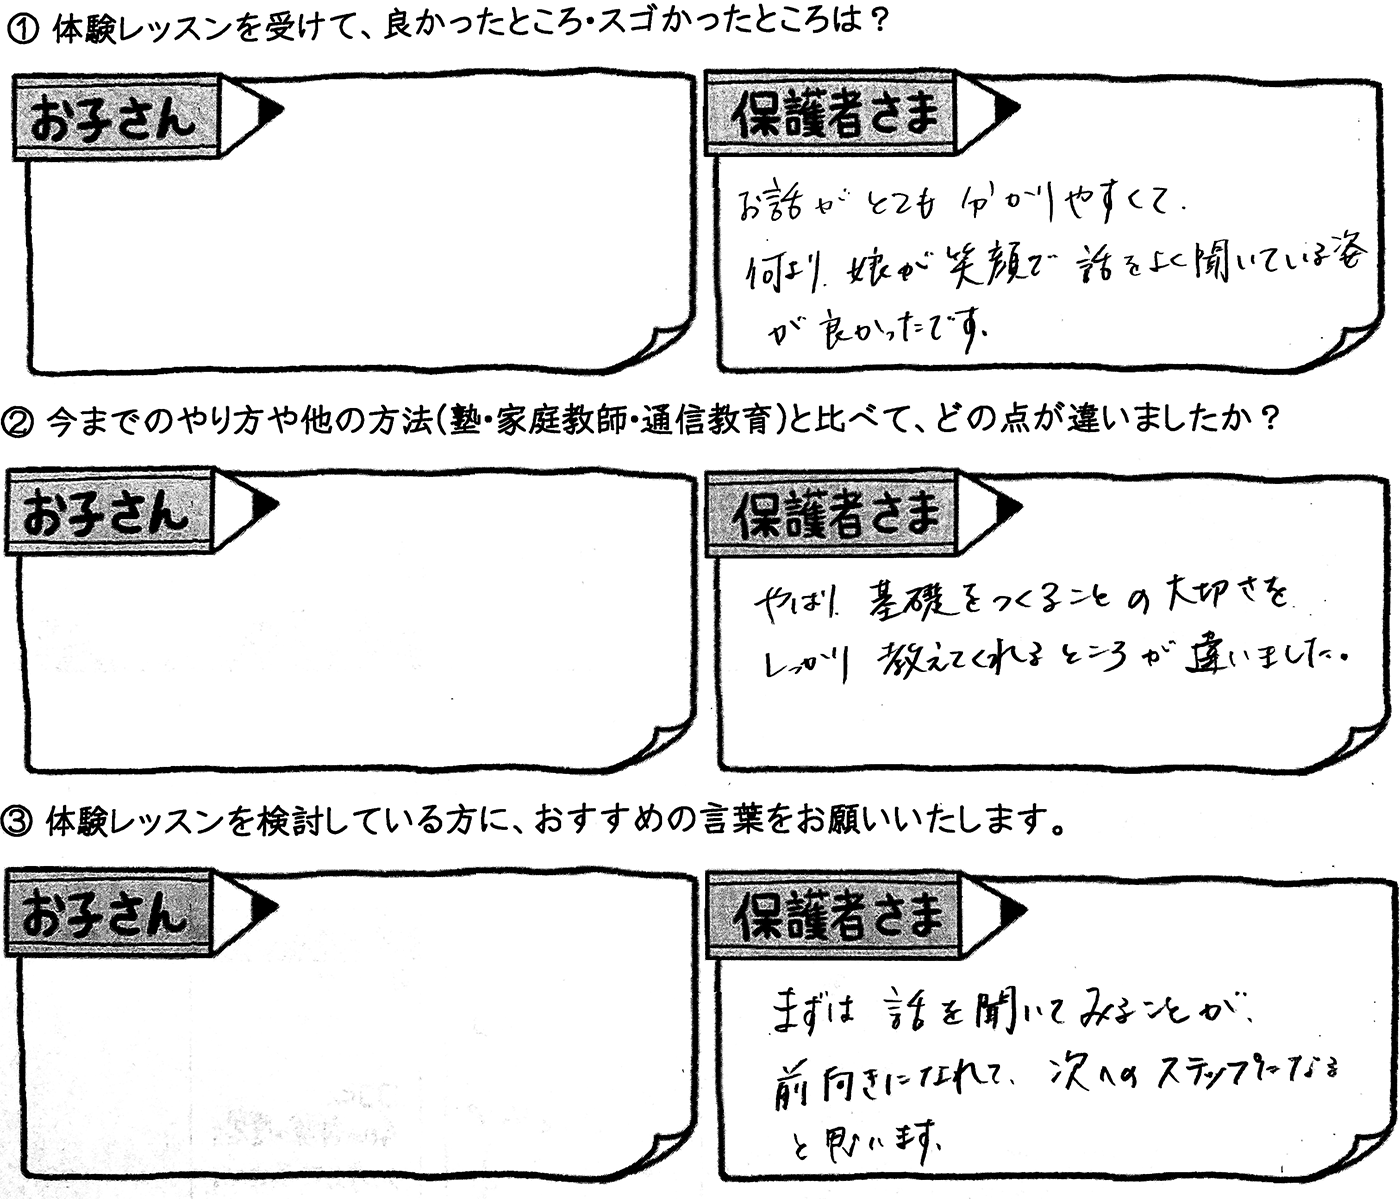 ① 体験レッスンを受けて、良かったところ・スゴかったところは？
お子さん
保護者さま
お話がとても分かりやすくて、
何より、娘が笑顔で話をよく聞いている姿
が良かったです。
② 今までのやり方や他の方法(塾・家庭教師・通信教育)と比べて、どの点が違いましたか？
お子さん
保護者さま
やはり、基礎をつくることの大切さを
しっかり教えてくれるところが違いました。
③ 体験レッスンを検討している方に、おすすめの言葉をお願いいたします。
お子さん
保護者さま
まずは話を聞いてみることが、
前向きになれて、次へのステップになる
と思います。